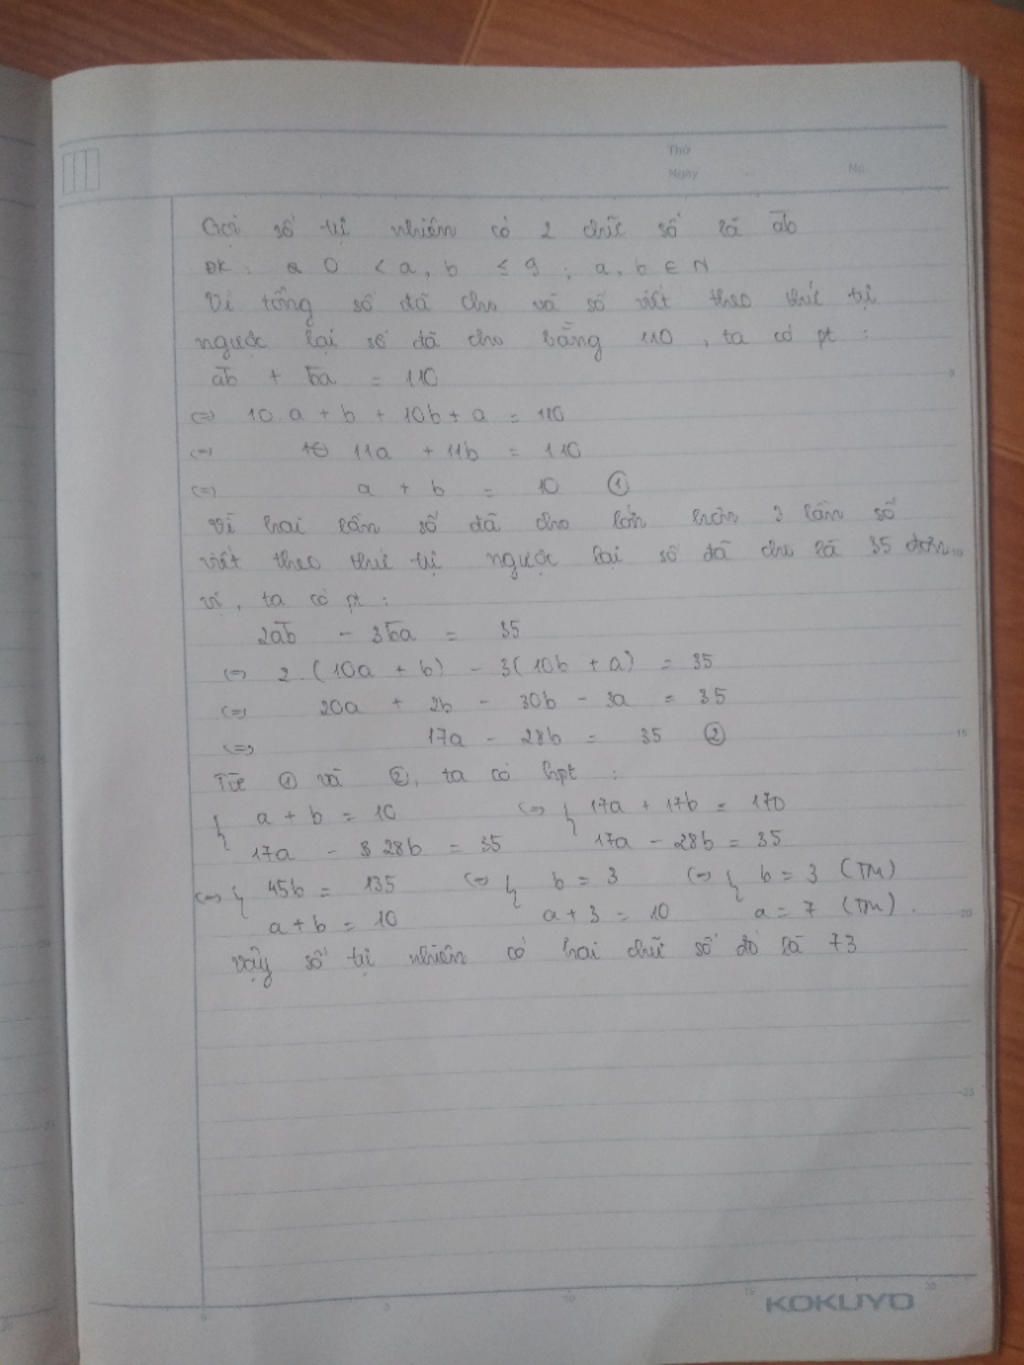 Thứ
Ngày No.
Gọi số tự nhiên có 2 chữ số là ab
ĐK : 0 < a, b ≤ 9 ; a, b ∈ N
Vì tổng số đã cho và số viết theo thứ tự
ngược lại số đã cho bằng 110, ta có pt :
ab + ba = 110
⇔ 10 a + b + 10b + a = 110
⇔ 11a + 11b = 110
⇔ a + b = 10 ①
Vì hai lần số đã cho lớn hơn 3 lần số
viết theo thứ tự ngược lại số đã cho là 35 đơn
vị, ta có pt :
2ab - 3ba = 35
⇔ 2. (10a + b) - 3(10b + a) = 35
⇔ 20a + 2b - 30b - 3a = 35
⇔ 17a - 28b = 35 ②
Từ ① và ②, ta có hpt :
{ a + b = 10 ⇔ { 17a + 17b = 170
17a - 28b = 35 17a - 28b = 35
⇔ { 45b = 135 ⇔ { b = 3 ⇔ { b = 3 (TM)
a + b = 10 a + 3 = 10 a = 7 (TM).
Vậy số tự nhiên có hai chữ số đó là 73
KOKUYO